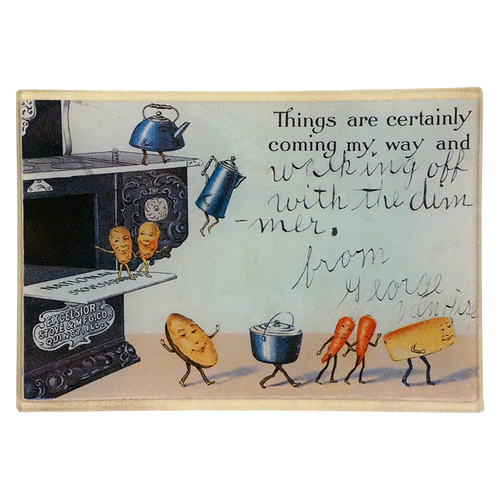 Things are certainly
coming my way and
walking off
with the dim
-mer.
from
George
NATIONAL
EXCELSIOR
STOVE & MFG. CO.
QUINCY, ILL.